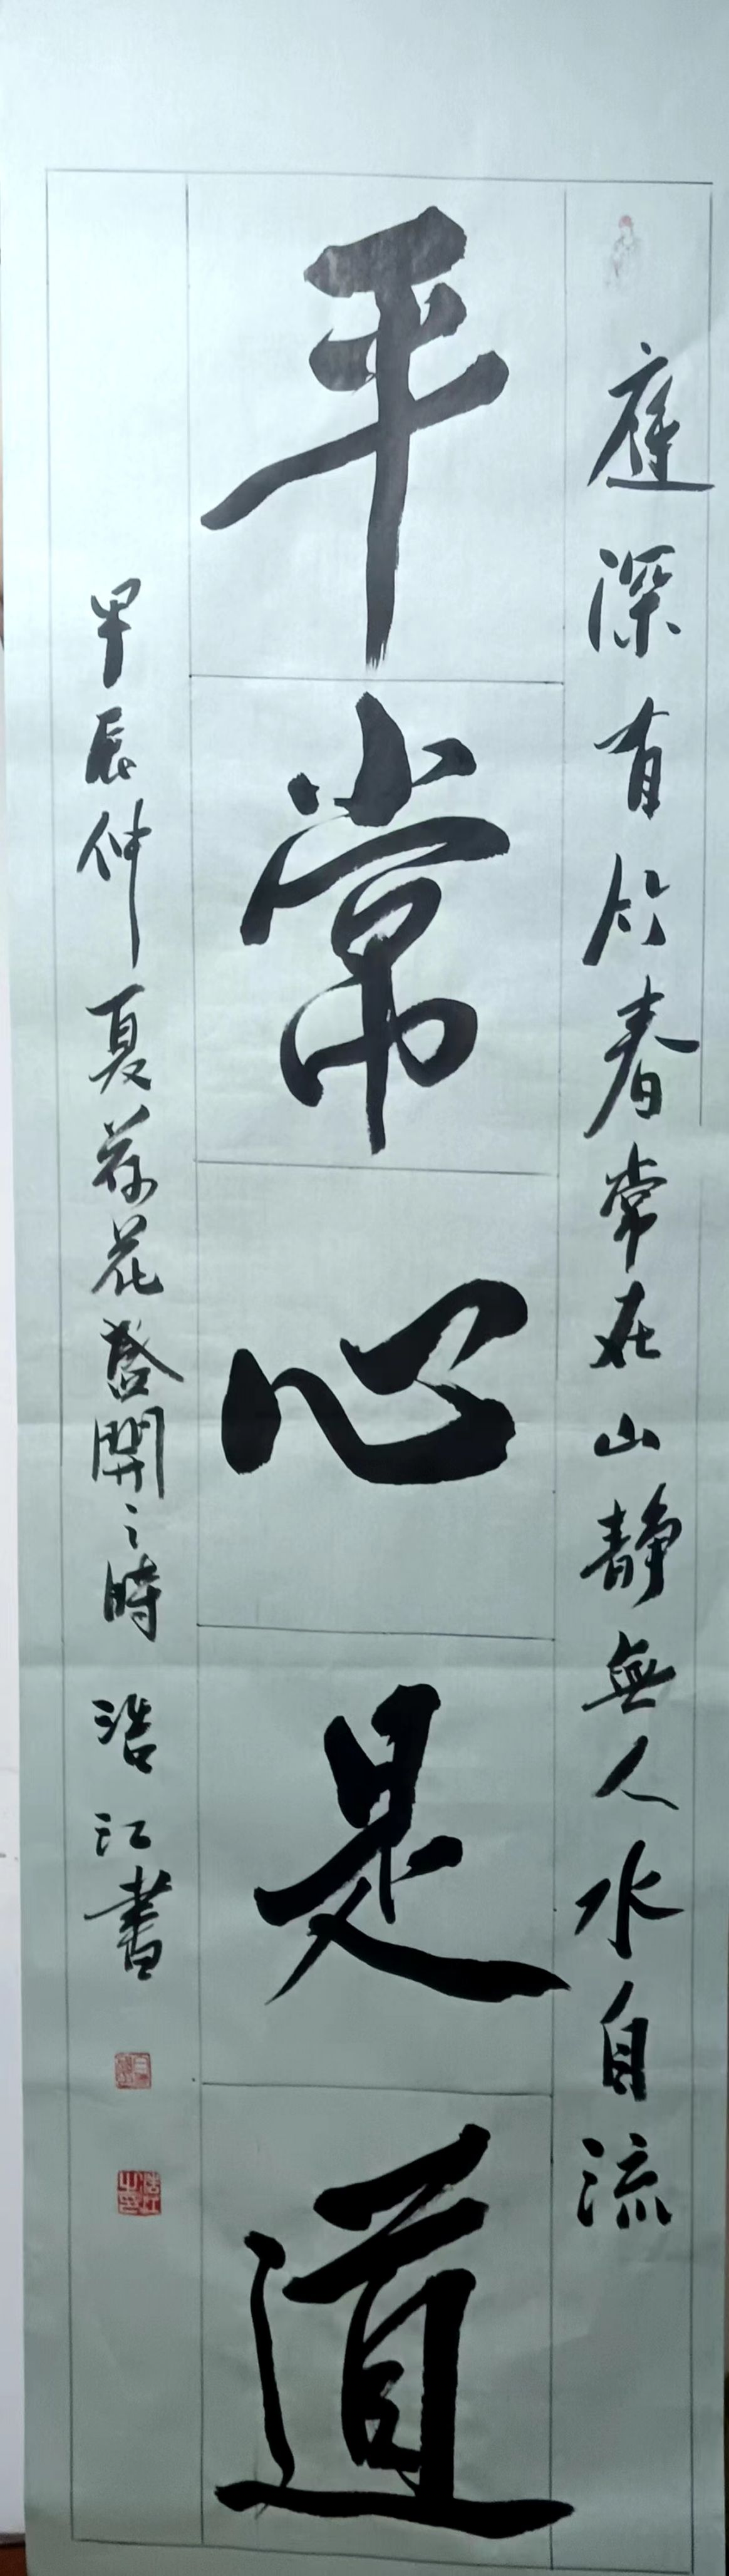 庭深有竹春常在山靜無人水自流
平常心是道
甲辰仲夏荷花盛開之時 浩江書
浩江之印